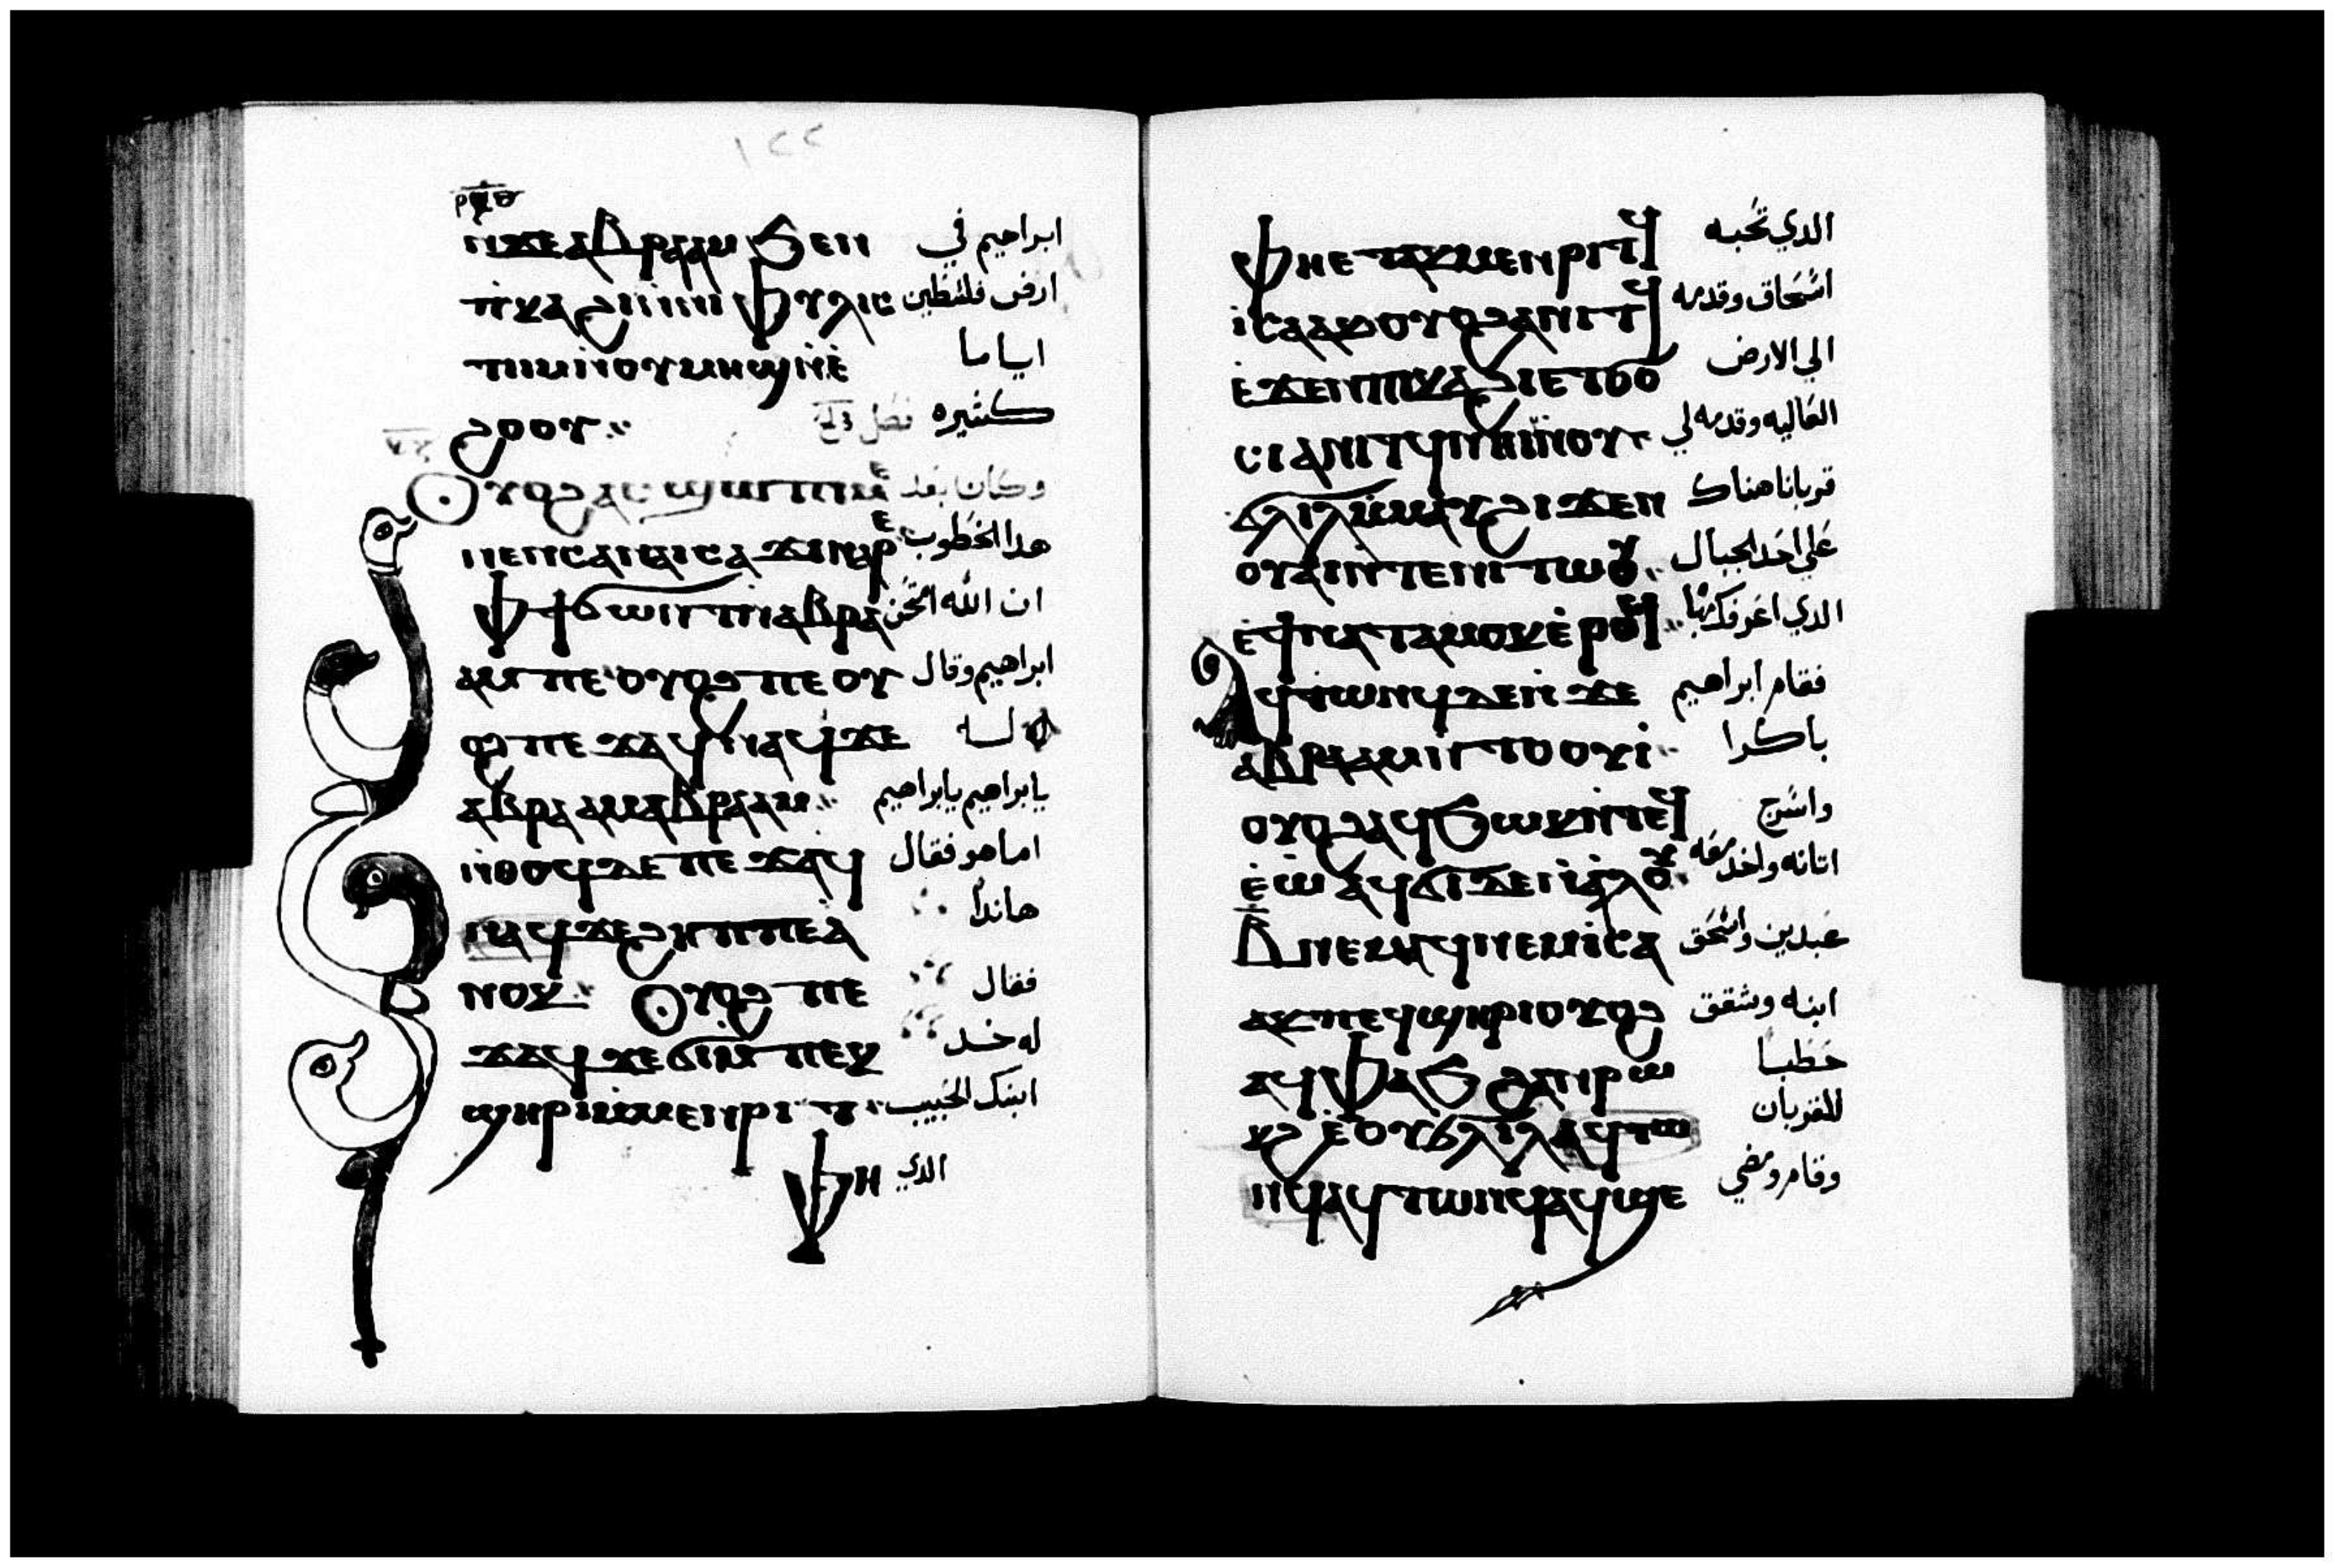 ١٢٢
ⲛ̀ϫⲉⲁⲃⲣⲁⲁⲙ ϧⲉⲛ ابراهيم في
ⲡ̀ⲕⲁϩⲓⲛ̀ⲛⲓ ⲫⲩⲗⲓⲥ ارض فلسطين
ⲧⲓⲓⲙⲛ̀ⲟⲩⲙⲏϣⲛ̀ⲉ̀ اياما
ϩⲟⲟⲩ كثيره فصل
ⲟⲩⲟϩⲁⲥϣⲱⲡⲓⲙⲉ وكان بعد
ⲛⲉⲛⲥⲁⲛⲁⲓⲥⲁϫⲓⲛⲁⲣⲉ هدا الخطوب
ⲫϯϭⲱⲛⲧⲛ̀ⲁⲃⲣⲁ ان الله امتحن
ⲁⲙ ⲡⲉ ⲟⲩⲟϩ ⲡⲉ ⲟⲩ ابراهيم وقال
ⲟϩ ⲡⲉϫⲁϥ ⲛⲁϥ ϫⲉ له
ⲁⲃⲣⲁⲁⲙⲁⲃⲣⲁⲁⲙ يابراهيم يابراهيم
ⲛ̀ⲑⲟϥⲇⲉ ⲡⲉϫⲁϥ اما هو فقال
ⲛⲁϥϫⲉϩⲏⲡⲡⲉⲁ̀ هاندا
ⲛⲟⲕ ⲟⲩⲟϩ ⲡⲉ فقال
ϫⲁϥ ϫⲉϭⲓⲙ̀ⲡⲉⲕ له خد
ϣⲏⲣⲓⲙ̀ⲙⲉⲛⲣⲓⲧ ابنك الحبيب
ⲫⲏ الدي
ⲫⲏⲉⲧⲁⲕⲙⲉⲛⲣⲓⲧϥ الدي تحبه
ⲓⲥⲁⲁⲕⲟⲩⲟϩⲁⲛⲓⲧϥ اسحاق وقدمه
ⲉ̀ϫⲉⲛⲡⲓⲕⲁϩⲓⲉⲧϭⲟ الي الارض
ⲥⲓⲁⲛⲓⲧϥⲛⲏⲓⲛ̀ⲟⲩ العاليه وقدمه لي
ϭⲗⲓⲗⲙ̀ⲙⲁⲩϩⲓϫⲉⲛ قربانا هناك
ⲟⲩⲁⲓⲛ̀ⲧⲉⲛⲓⲧⲱⲟⲩ علي احد الجبال
ⲉ̀ϯⲛⲁⲧⲁⲙⲟⲕⲉ̀ⲣⲟϥ الدي اعرفك بها
ⲁϥⲧⲱⲛϥⲇⲉⲛ̀ϫⲉ فقام ابراهيم
ⲁⲃⲣⲁⲁⲙⲛ̀ⲧⲟⲟⲩⲓ̀ باكرا
ⲟⲩⲟϩⲁϥϧⲱⲕⲛ̀ⲧⲉϥ واسرج
ⲉ̀ⲱ̀ ⲁϥϭⲓⲇⲉⲛ̀ⲁ̀ⲗⲟⲩ اتانه واخد معه
ⲃ̅ⲛⲉⲙⲁϥⲛⲉⲙⲓⲥⲁ عبدين واسحق
ⲁⲕⲡⲉϥϣⲏⲣⲓⲟⲩⲟϩ ابنه وشقق
ⲁϥⲫⲁϧ ϩⲁⲛⲣⲱ حطبا
ⲕϩ ⲉ̀ⲟⲩϭⲗⲓⲗⲁϥⲧⲱ للقربان
ⲛϥⲁϥⲧⲱⲛϥⲁϥϣⲉ وقام ومضي